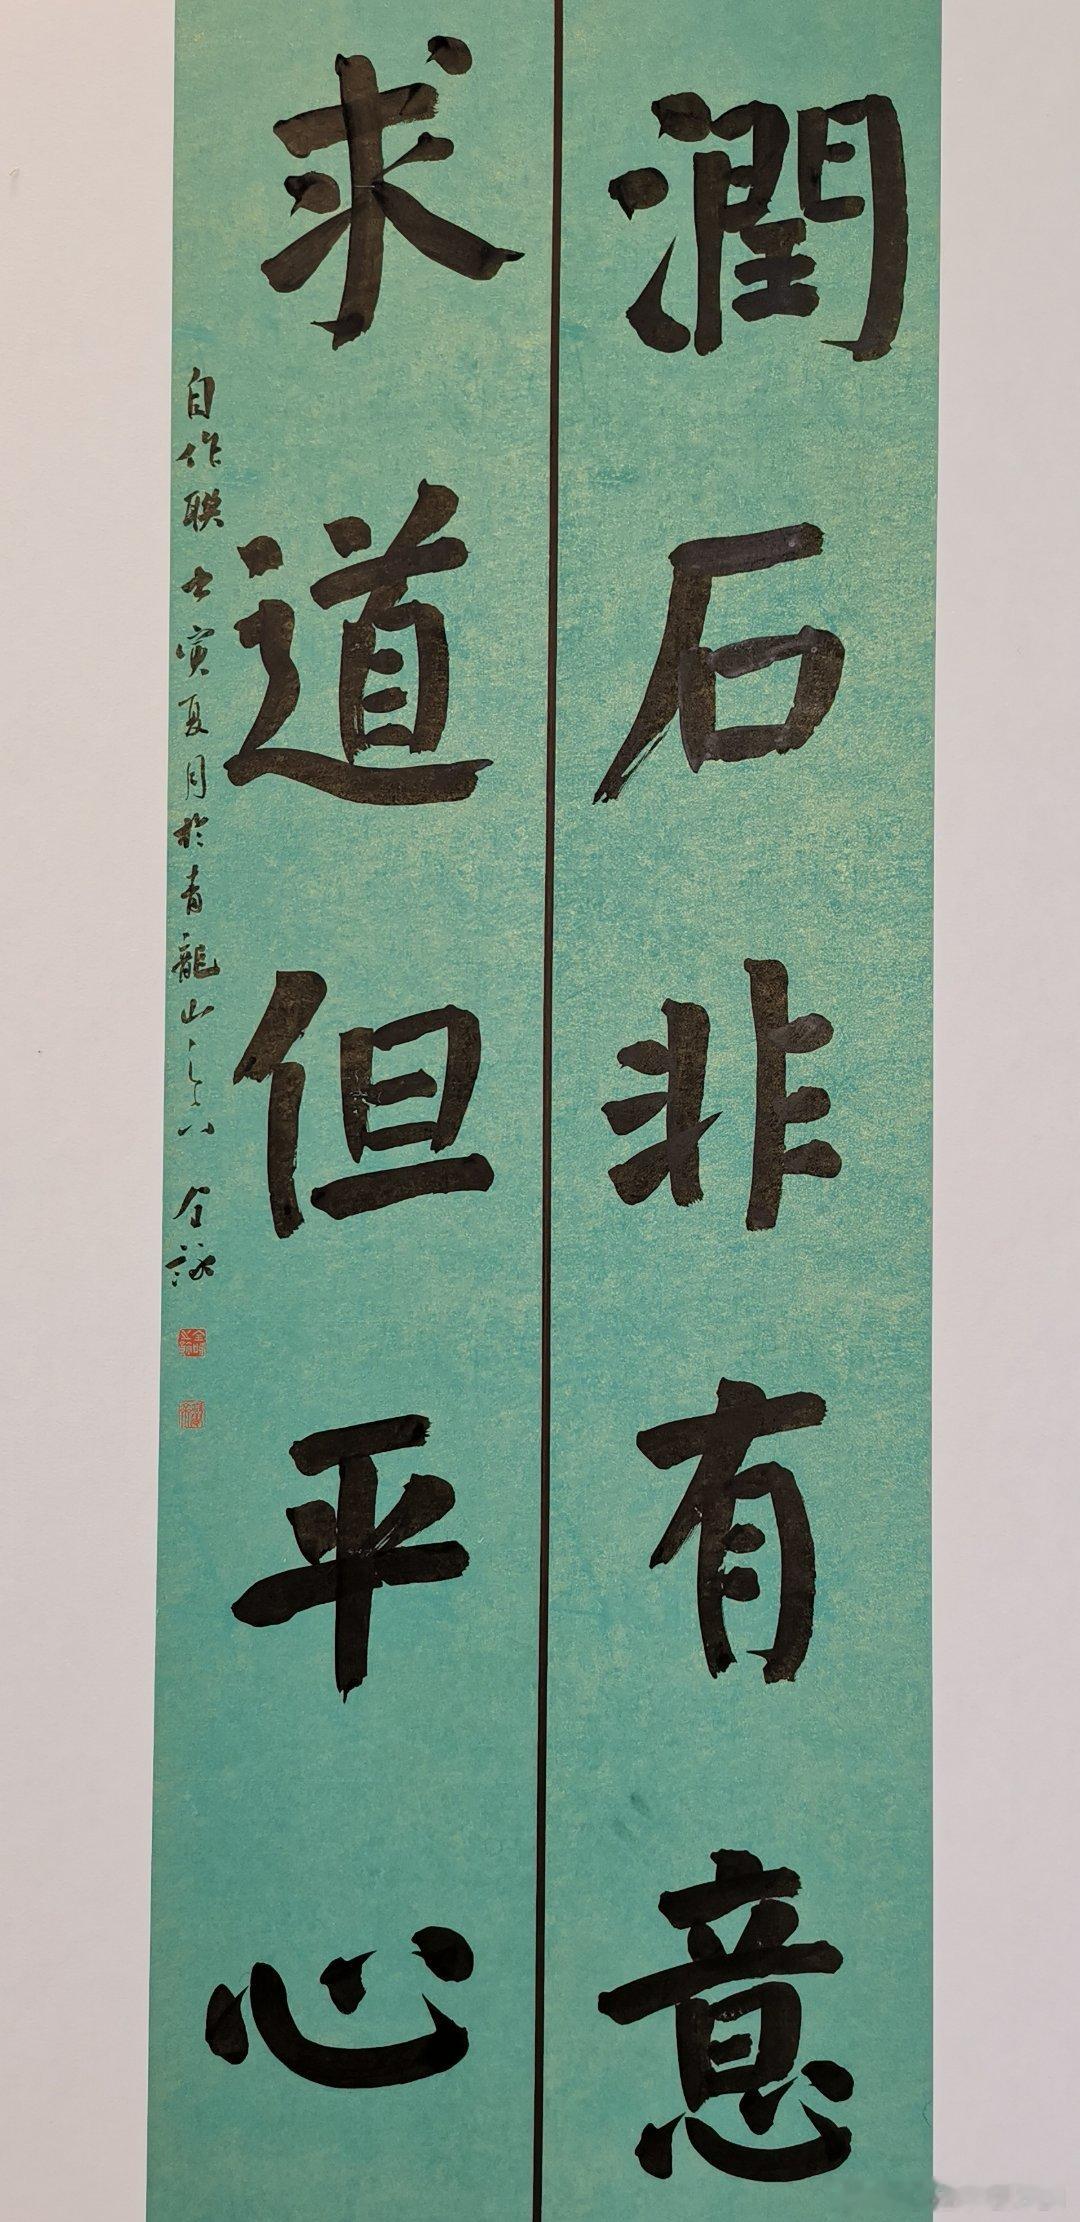 潤石非有意
求道但平心
自作聯壬寅夏月於青龍山